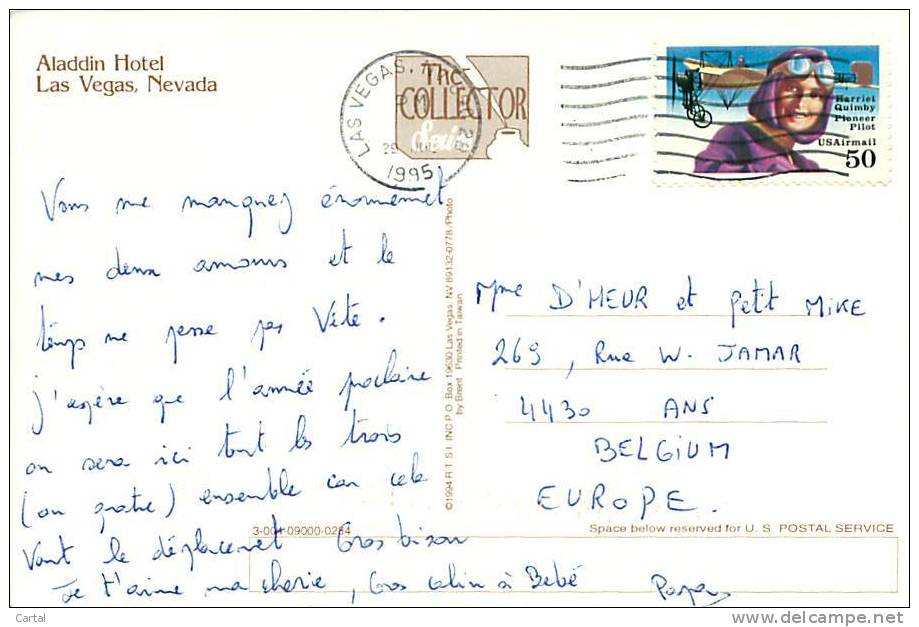 Aladdin Hotel
Las Vegas, Nevada
The
COLLECTOR
Series
LAS VEGAS,
1995
Harriet
Quimby
Pioneer
Pilot
USAirmail
50
Vous me manquez énormemet
mes deux amours et le
temps ne passe pas Vite.
j'espère que l'année prochaine
on sera ici tout les trois
(ou quatre) ensemble car cela
Vaut le déplacemet Gros bisou
Je t'aime ma cherie, Gros calin à Bebé
Papa
©1994 R.T.S.I. INC P.O. Box 19630 Las Vegas, NV 89132-0778 /Photo
by Brent Printed in Taiwan
Mme D'HEUR et Petit MIKE
269, Rue W. JAMAR
4430 ANS
BELGIUM
EUROPE.
3-001-09000-0284
Space below reserved for U. S. POSTAL SERVICE
Cartal
www.delcampe.net